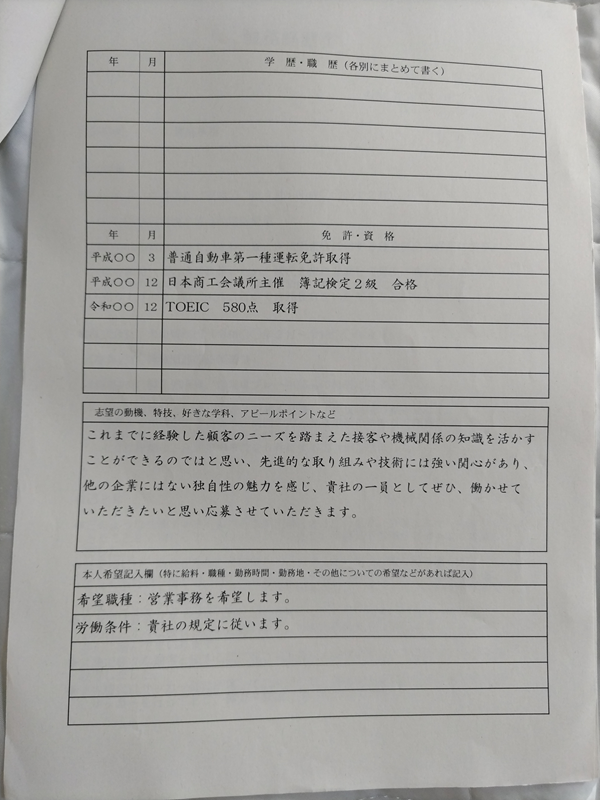 年 月 学 歴・職 歴（各別にまとめて書く）
年 月 免 許・資 格
平成○○ 3 普通自動車第一種運転免許取得
平成○○ 12 日本商工会議所主催 簿記検定２級 合格
令和○○ 12 TOEIC 580点 取得
志望の動機、特技、好きな学科、アピールポイントなど
これまでに経験した顧客のニーズを踏まえた接客や機械関係の知識を活かす
ことができるのではと思い、先進的な取り組みや技術には強い関心があり、
他の企業にはない独自性の魅力を感じ、貴社の一員としてぜひ、働かせて
いただきたいと思い応募させていただきます。
本人希望記入欄（特に給料・職種・勤務時間・勤務地・その他についての希望などがあれば記入）
希望職種：営業事務を希望します。
労働条件：貴社の規定に従います。